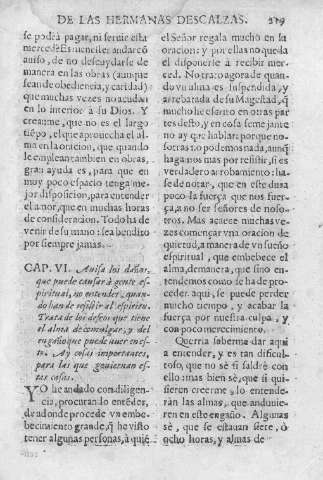 DE LAS HERMANAS DESCALZAS. 219
se podrá pagar, ni seruir esta
merced? Es menester andar cõ
auiso, de no descuydarse de
manera en las obras (aunque
sean de obediencia, y caridad)
que muchas vezes no acudan
en lo interior a su Dios. Y
creanme, que no es el largo
tiẽpo, el que aprouecha el al
ma en la oracion, que quando
le emplean tambien en obras,
gran ayuda es, para que en
muy poco espacio tenga me-
jor disposicion, para entender
el amor, que en muchas horas
de consideracion. Todo ha de
venir de su mano: sea bendito
por siempre jamas.
CAP. VI. Auisa los daños,
que puede causar à gente es-
piritual, no entender, quan-
do han de resistir al espiritu.
Trata de los deseos que tiene
el alma de comulgar, y del
engaño que puede auer en es-
to. Ay cosas importantes,
para las que gouiernan es-
tas casas.
YO he andado con diligen-
cia, procurando entẽder,
de adonde procede vn embe-
becimiento grande, q̃ he visto
tener algunas personas, à quiẽ
el Señor regala mucho en la
oracion: y por ellas no queda
el disponerse à recibir mer-
ced. No trato agora de quan-
do vn alma es suspendida, y
arrebatada de su Magestad, q̃
mucho he escrito en otras par
tes desto, y en cosa semejante
no ay que hablar: porque no-
sotras no podemos nada, aunq̃
hagamos mas por resistir, si es
verdadero arrobamiento: ha-
se de notar, que en este dura
poco la fuerça que nos fuer-
ça, a no ser señores de noso-
tros. Mas acaece muchas ve-
zes començar vna oracion de
quietud, a manera de vn sueño
espiritual, que embebece el
alma, demanera, que sino en-
tendemos como se ha de pro-
ceder aqui, se puede perder
mucho tiempo, y acabar la
fuerça por nuestra culpa, y
con poco merecimiento.
Querria saberme dar aqui
a entender, y es tan dificul-
toso, que no sè si saldrè con
ello: mas bien sè, que si qui-
sieren creerme, lo entende-
ràn las almas, que anduuie-
ren en este engaño. Algunas
sè, que se estauan siete, ò
ocho horas, y almas de